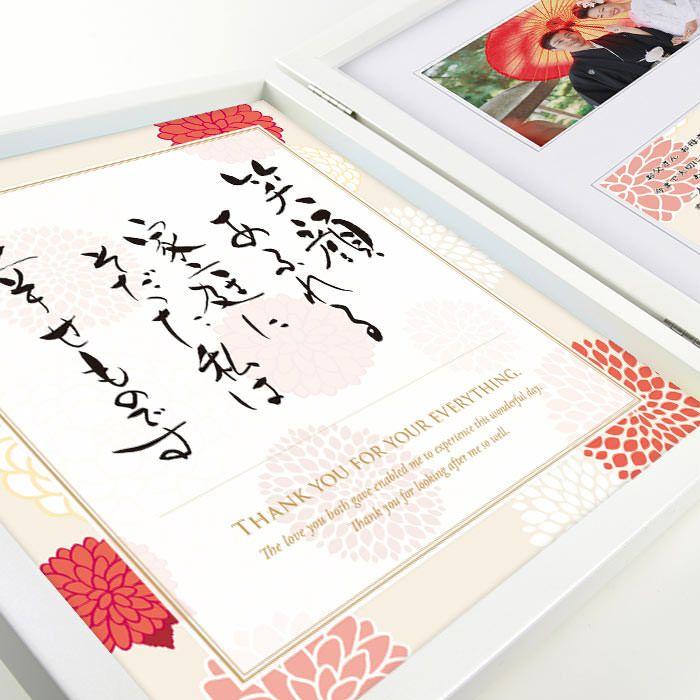 笑顔
あふれる
家庭に
そだった、私は
幸せものです
THANK YOU FOR YOUR EVERYTHING.
The love you both gave enabled me to experience this wonderful day.
Thank you for looking after me so well.
お父さん お母
今まで大切に